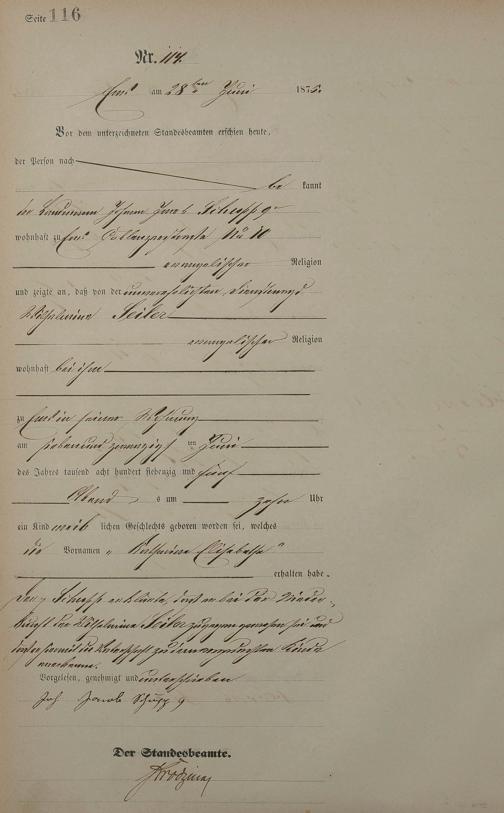 Seite 116
Nr. 114.
Ems am 28ten Juni 1875.
Vor dem unterzeichneten Standesbeamten erschien heute,
der Person nach
be kannt
der Johann Jacob Schupp
wohnhaft zu Ems Coblenzerstraße No
evangelischer Religion
und zeigte an, daß von der unverehelichten Dienstmagd
Wilhelmine Seiler
evangelischer Religion
wohnhaft bei ihm
zu Ems in seiner Wohnung
am sieben und zwanzigsten Juni
des Jahres tausend acht hundert siebenzig und fünf
Abends um zehn Uhr
ein Kind weiblichen Geschlechts geboren worden sei, welches
die Vornamen „Katharina Elisabetha"
erhalten habe.
Schupp erklärte, daß er bei der Nieder-
kunft der Wilhelmine Seiler zugegen gewesen sei und
die Vaterschaft zu dem Kinde
anerkenne.
Vorgelesen, genehmigt und unterschrieben
Joh Jacob Schupp
Der Standesbeamte.